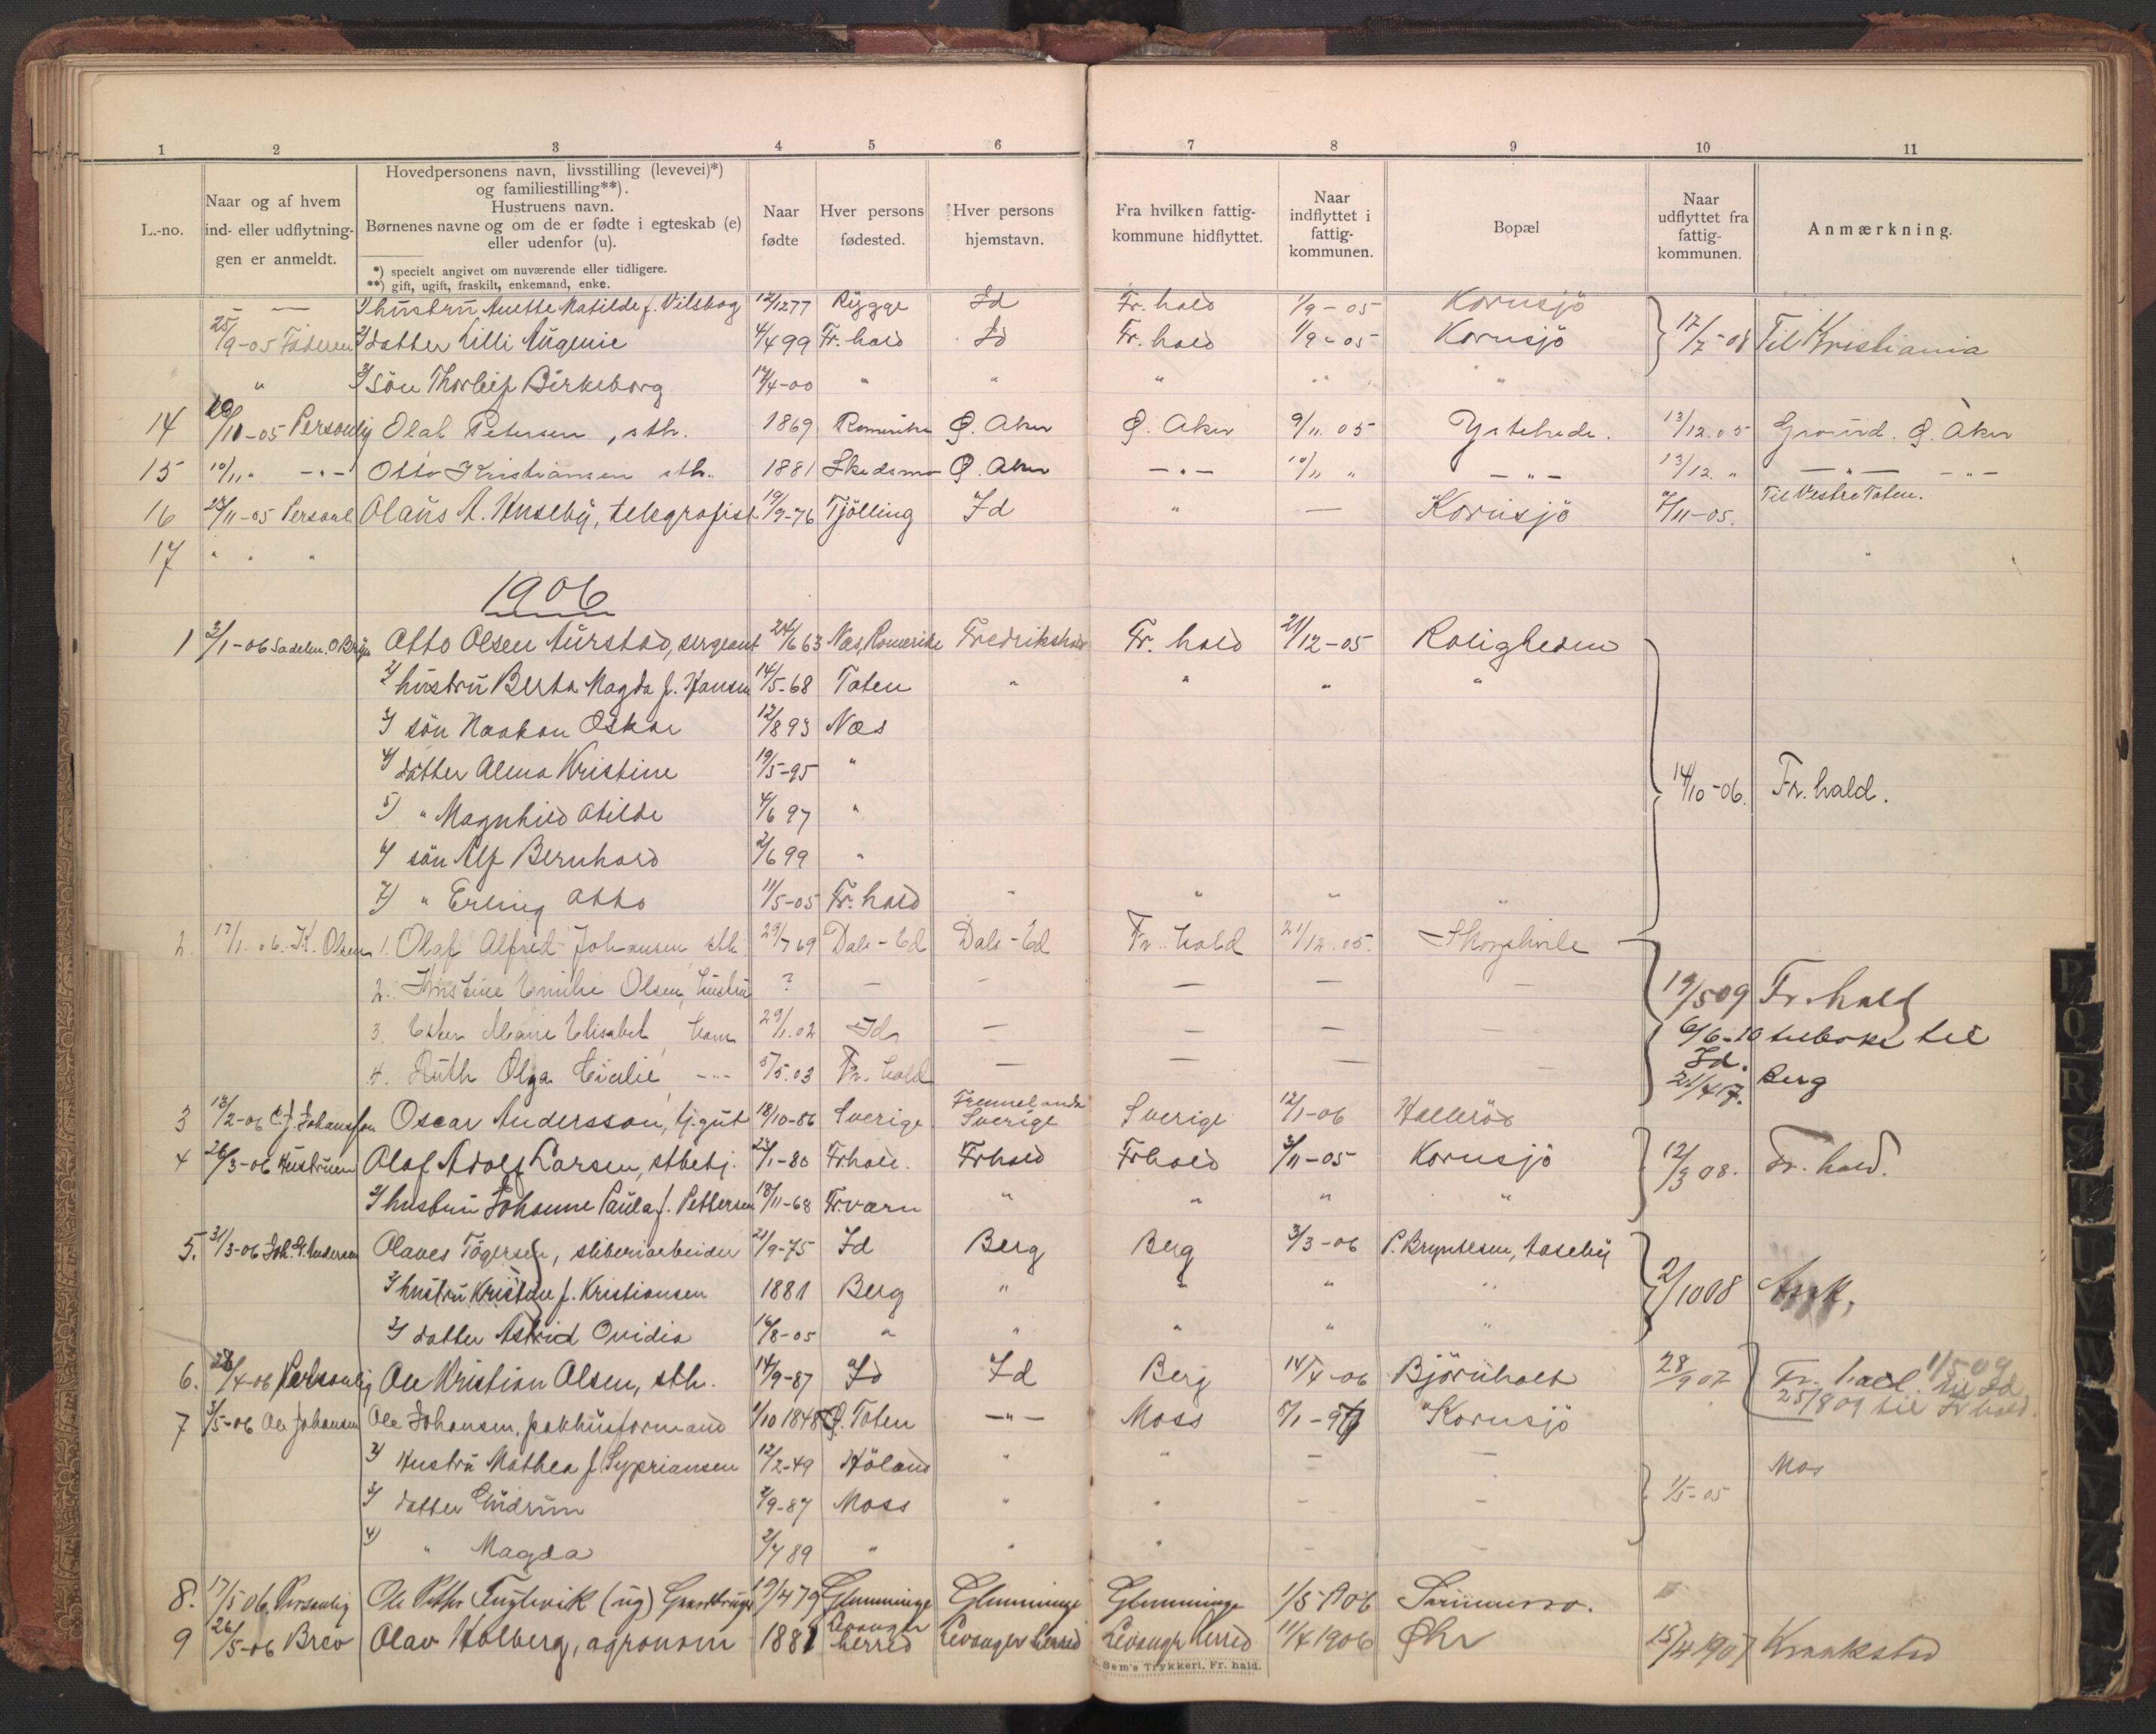 1 2 3 4 5 6 7 8 9 10 11
L.-no.
Naar og af hvem ind- eller udflytningen er anmeldt.
Hovedpersonens navn, livsstilling (levevei)*)
og familiestilling**).
Hustruens navn.
Børnenes navne og om de er fødte i egteskab (e)
eller udenfor (u).
*) specielt angivet om nuværende eller tidligere.
**) gift, ugift, fraskilt, enkemand, enke.
Naar fødte
Hver persons fødested.
Hver persons hjemstavn.
Fra hvilken fattigkommune hidflyttet.
Naar indflyttet i fattigkommunen.
Bopæl
Naar udflyttet fra fattigkommunen.
Anmærkning.
— — hustru Anette Matilde f. Vilsbog 12/12 77 Rygge Id Fr. hald 1/9-05 Kornsjö
25/9-05 Faderen 2) datter Lilli Augenie 4/4 99 Fr. hald Id Fr. hald 1/9-05 Kornsjö 17/7-08 Til Kristiania
" 3) sön Thorleif Birkeborg 14/4-00 " " " " " "
14 10/11-05 Personlig Olal Petersen, sth. 1869 Romerike Ø. Aker Ø. Aker 9/11.05 Ystehede. 13/12.05 Grorud. Ø. Aker
15 10/11 " -"- Otto Kristiansen sth. 1881 Skedsmo Ø. Aker -"- 10/11 " -"- 13/12. " -"- -"-
16 25/11-05 Personl Olaus A. Huseby, telegrafist 19/9-76 Tjölling Id " — Kornsjö 7/11-05. Til Vestre Toten.
17 " " " "
1906
1 3/1-06 Sadelm. O Bryn Otto Olsen Aurstad, sergeant 24/6 63 Næs, Romerike Fredrikshald Fr. hald 21/12-05 Roligheden
2) hustru Berta Magda f. Hansen 14/5-68 Toten " " " "
3) sön Haakon Oskar 12/8 93 Næs
4) datter Alma Kristine 19/5-95 "
5) " Magnhild Otilde 4/6 97 " 14/10-06. Fr. hald.
6) sön Alf Bernhard 2/6 99 "
7) " Erling Otto 11/5-05 Fr. hald " " " "
2. 17/1.06. K. Olsen 1. Olaf Alfred Johansen, sth. 29/7 69 Dals-Ed Dals-Ed Fr. hald 21/12.05. Skogshvile
2. Kristine Emilie Olsen, hustru ? — — — — — 19/5 09 Fr. hald
3. Ester Marie Elisabet, barn 29/1.02 Id — — — — 6/6-10 tilbake til Id.
4. Ruth Olga Cicilie -"- 5/5.03 Fr. hald — — — 21/4 17. Berg
3 13/2-06 C. J. Johansson Oscar Andersson, tj.gut 18/10-86 Sverige Sverige Sverige 12/1-06 Holleröd
4 26/3-06 Hustruen Olaf Adolf Larsen, stbetj. 24/1-80 Frhald. Frhald Frhald 3/11-05 Kornsjö 12/3 08. Fr. hald.
2) hustru Johanne Paula f. Pettersen 18/11-68 Fr.værn " " " "
5. 31/3-06 Joh. G. Andersen Olaves Tögersen, sliberiarbeider 21/9-75 Id Berg Berg 3/3-06 P. Bryntesen, Aaseby
2) hustru Kristine f. Kristiansen 1881 Berg " " " " 2/10 08 Ask,
3) datter Astrid Ovidia 16/8-05 " " " " "
6. 28/4-06 Personlig Ole Kristian Olsen, sth. 14/9-87 Id Id Berg 14/4-06 Björnholt 28/9 07 Fr. hald. 1/5 09 til Id
25/8 09 til Fr hald.
7 3/5-06 Ole Johansen Ole Johansen, pakhusformand 1/10 1848 Ø. Toten -"- Moss 5/1-97 Kornsjö
2) Hustru Mathea f. Sypriansen 12/2-49 Höland " " — — Mos
3) datter Gudrun 2/9-87 Moss " " — — 1/5-05
4) " Magda 2/7 89 " " " — —
8. 17/5 06. Personlig Ole Petter Fuglevik (ug) Gaardbruger 19/4 79 Glemminge Glemminge Glemminge 1/5 1906
9 26/5-06 Brev Olav Holberg, agronom 1881 Levanger herred Levanger herred Levanger herred 11/4 1906 Øhr 15/4 1907 Kraakstad
Sem's Trykkeri, Fr. hald.
P Q R S T U V X Y Z